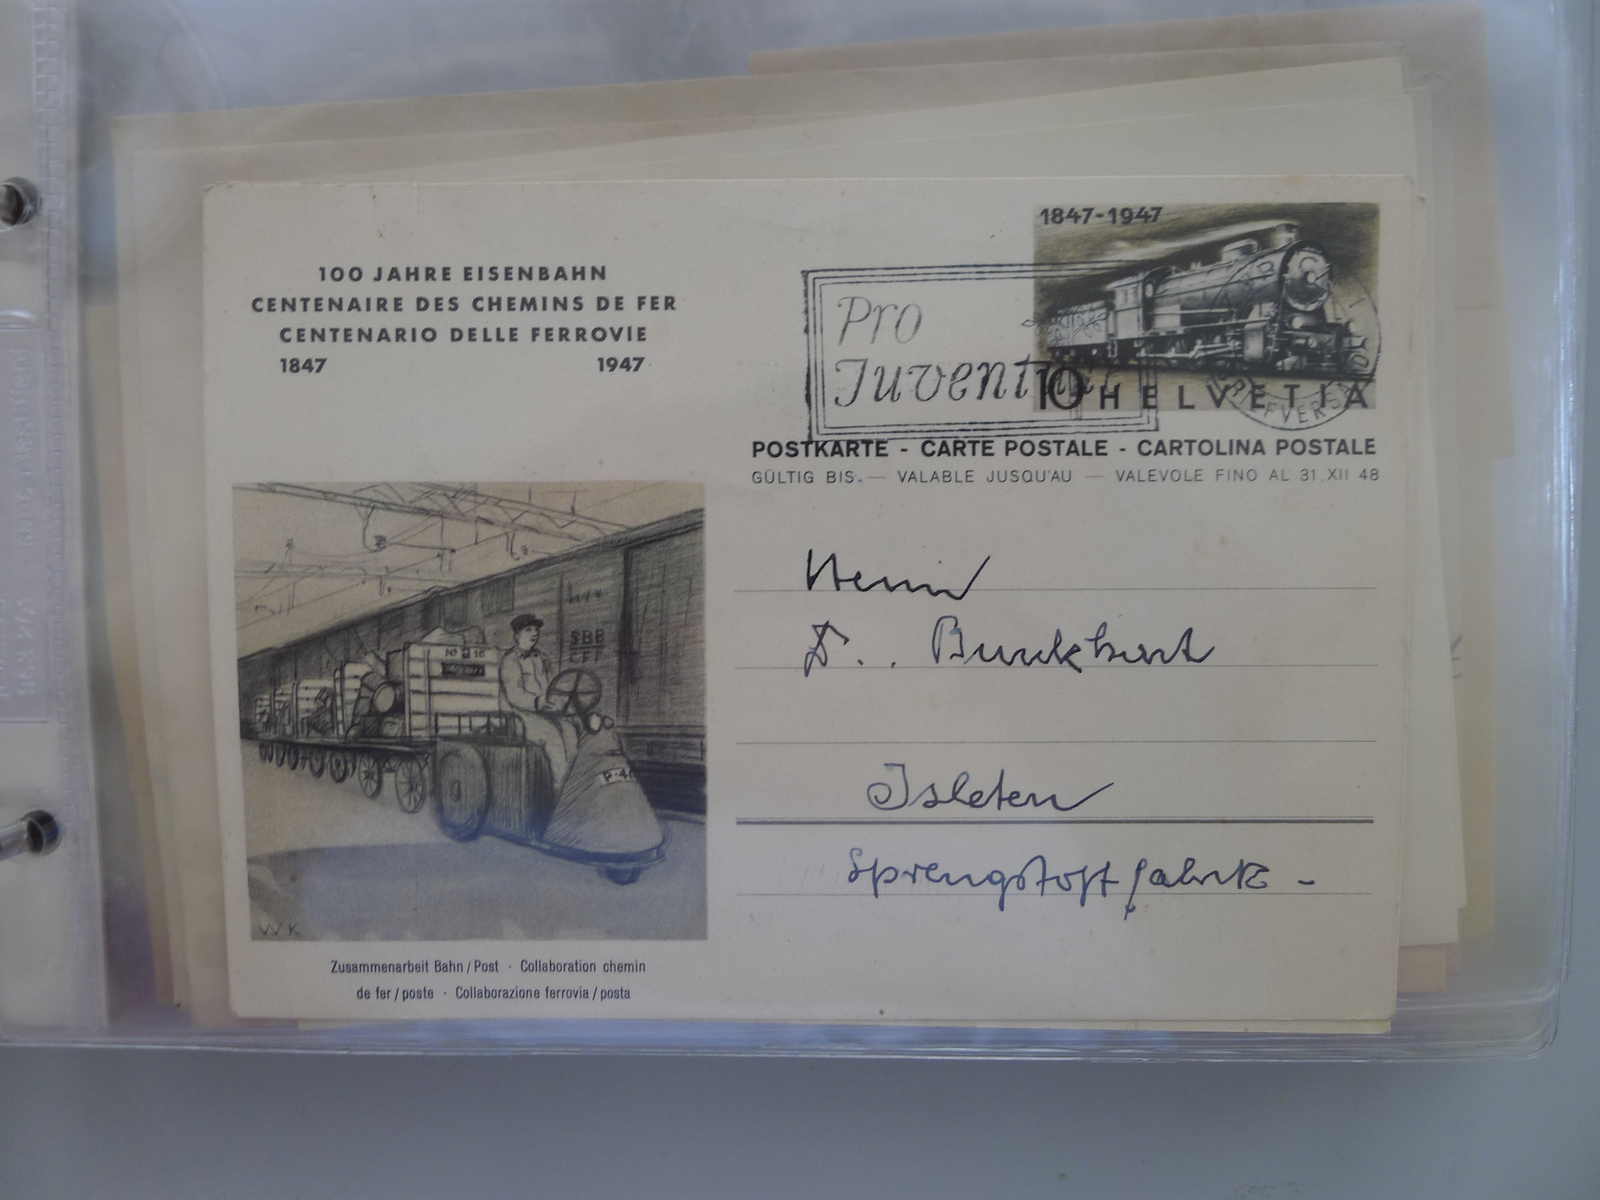 100 JAHRE EISENBAHN
CENTENAIRE DES CHEMINS DE FER
CENTENARIO DELLE FERROVIE
1847 1947
1847-1947
Pro
Juventute
10 HELVETIA
POSTKARTE - CARTE POSTALE - CARTOLINA POSTALE
GÜLTIG BIS — VALABLE JUSQU'AU — VALEVOLE FINO AL 31. XII 48
SBB
CFF
Nº 16
P-4
WK
Herrn
Dr. Burckhart
Isleten
Sprengstofffabrik -
Zusammenarbeit Bahn / Post · Collaboration chemin
de fer / poste · Collaborazione ferrovia / posta